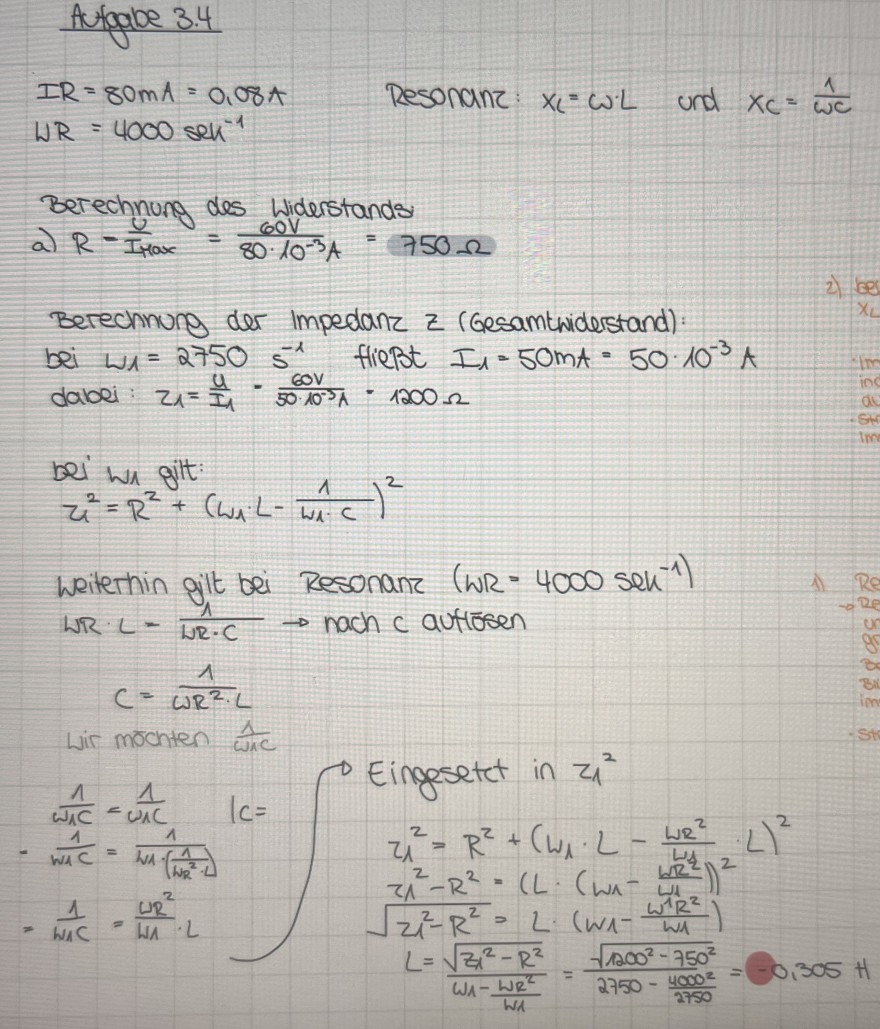 Aufgabe 3.4
IR = 80mA = 0,08A
Resonanz: XL = ω·L und XC = 1/ωC
ωR = 4000 sek⁻¹
Berechnung des Widerstands:
a) R = U/IMax = 60V/80·10⁻³A = 750 Ω
Berechnung der Impedanz Z (Gesamtwiderstand):
bei ω1 = 2750 s⁻¹ fließt I1 = 50mA = 50·10⁻³ A
dabei: Z1 = U/I1 = 60V/50·10⁻³A = 1200 Ω
bei ω1 gilt:
Z1² = R² + (ω1·L - 1/ω1·C)²
Weiterhin gilt bei Resonanz (ωR = 4000 sek⁻¹)
ωR·L = 1/ωR·C → nach C auflösen
C = 1/ωR²·L
Wir möchten 1/ω1C
1/ω1C = 1/ω1C |C=
= 1/ω1C = 1/ω1·(1/ωR²·L)
= 1/ω1C = ωR²/ω1 · L
→ Eingesetzt in Z1²
Z1² = R² + (ω1·L - ωR²/ω1 · L)²
Z1² - R² = (L·(ω1 - ωR²/ω1))²
√(Z1² - R²) = L·(ω1 - ω1R²/ω1)
L = √(Z1² - R²)/(ω1 - ωR²/ω1) = √(1200² - 750²)/(2750 - 4000²/2750) = -0,305 H
2) be
XL
Im
ind
au
Str
Im
1) Re
→ Re
un
gr
Be
im
· Str